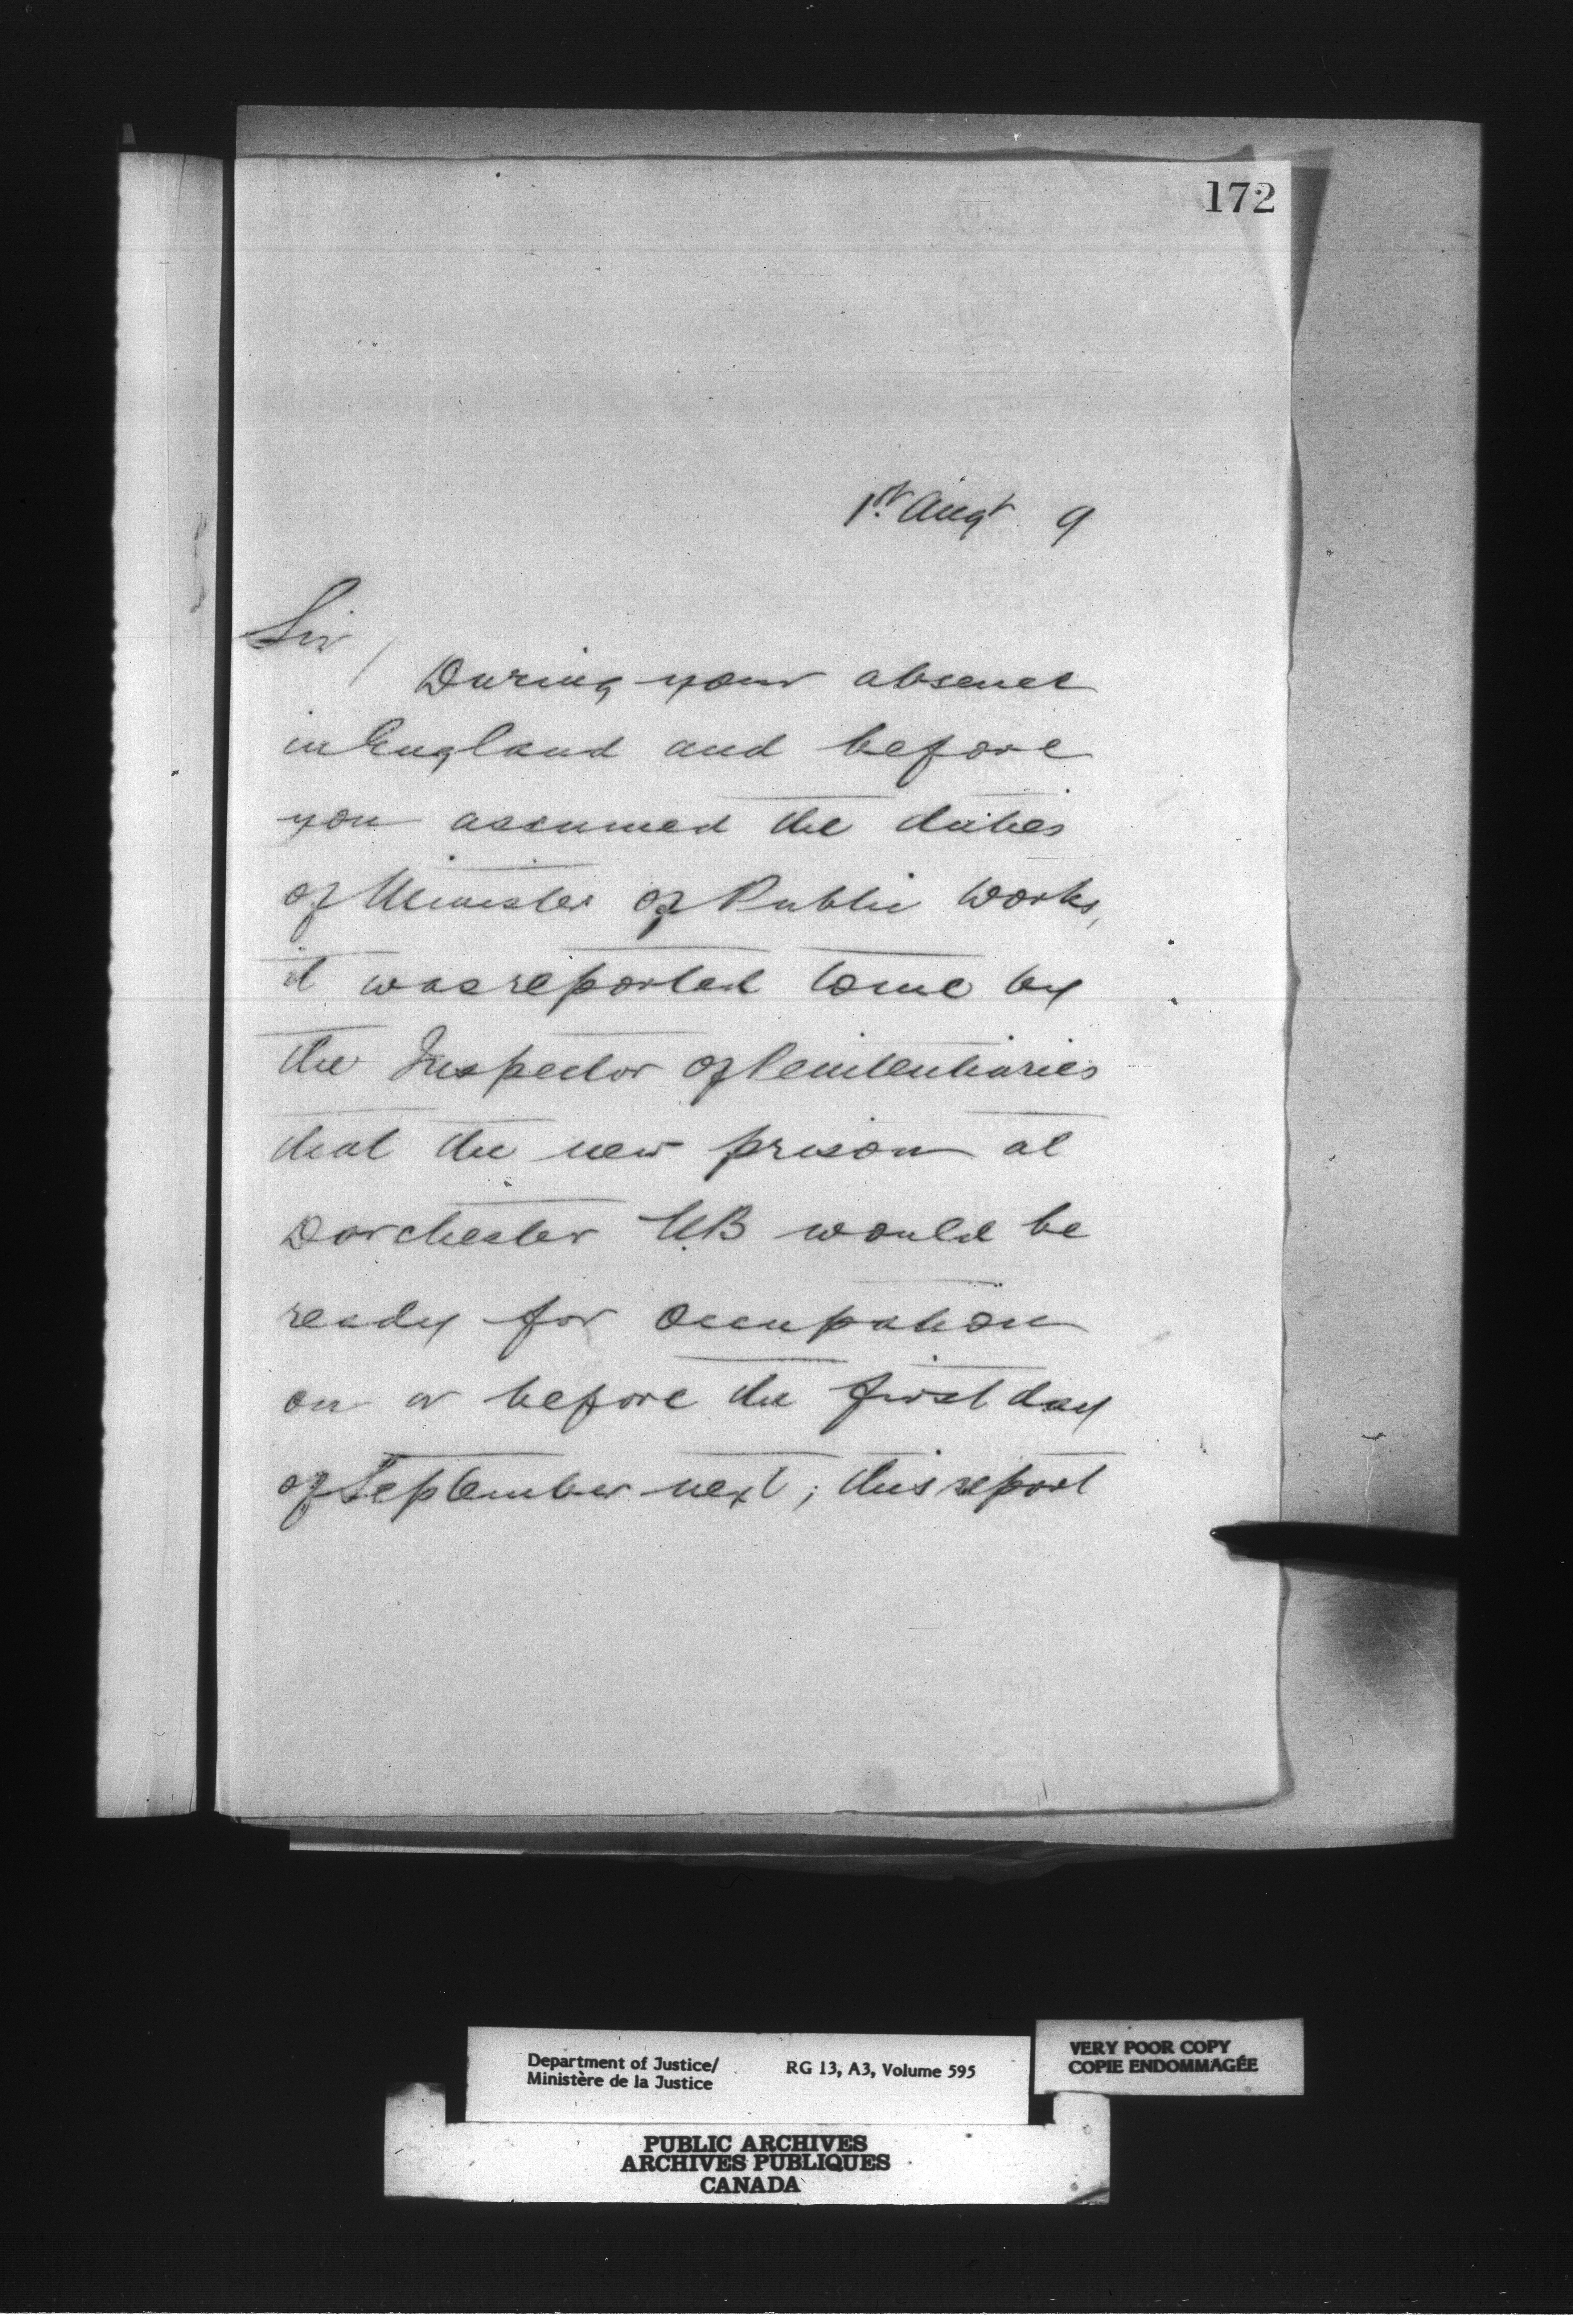 172
1st. Augt 9
Sir /
During your absence
in England and before
you assumed the duties
of Minister of Public Works,
it was reported to me by
the Inspector of Penitentiaries
that the new prison at
Dorchester N.B would be
ready for occupation
on or before the first day
of September next; this report
Department of Justice/
Ministère de la Justice
RG 13, A3, Volume 595
VERY POOR COPY
COPIE ENDOMMAGÉE
PUBLIC ARCHIVES
ARCHIVES PUBLIQUES
CANADA